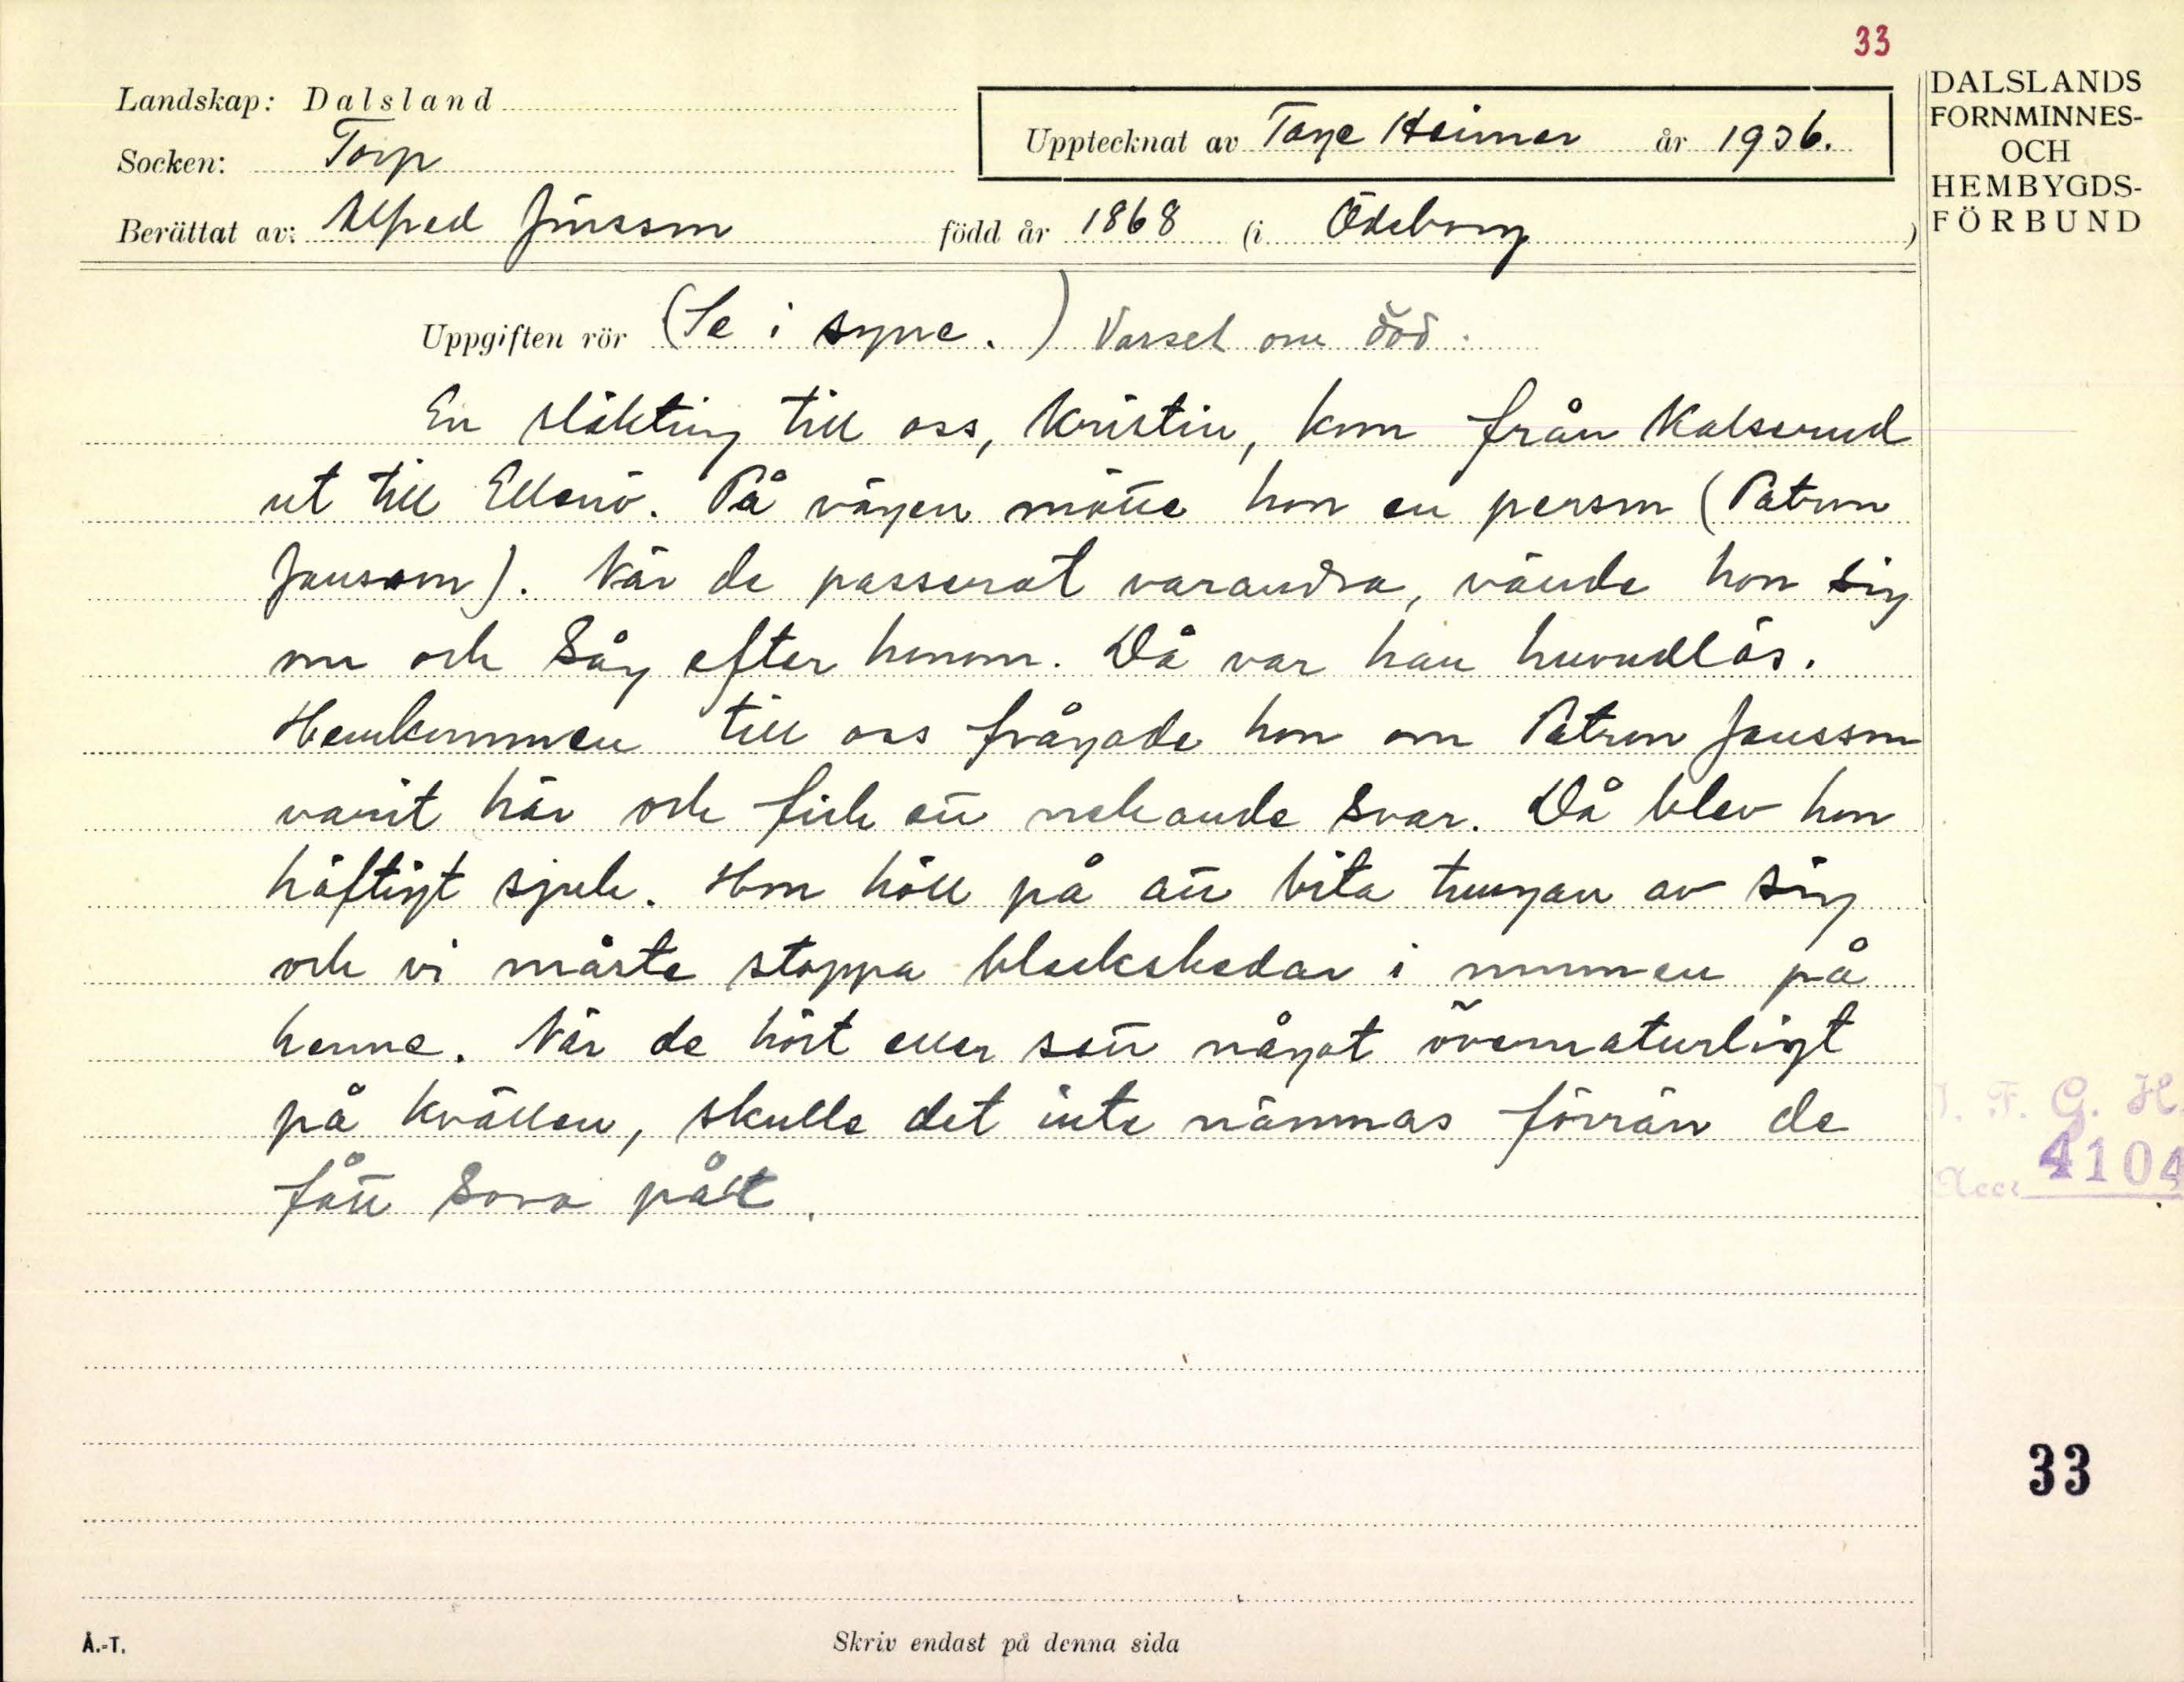 33
Landskap: Dalsland
Upptecknat av Tage Heimer år 1936.
Socken: Torp
Berättat av: Alfred Jönsson född år 1868 (i Ödeborg)
DALSLANDS
FORNMINNES-
OCH
HEMBYGDS-
FÖRBUND
Uppgiften rör (Se i syne.) Varsel om död.
En släkting till oss, Kristin, kom från Kalserud
ut till Ellenö. På vägen mötte hon en person (Patron
Jansson). När de passerat varandra, vände hon sig
om och såg efter honom. Då var han huvudlös.
Hemkommen till oss frågade hon om Patron Jansson
varit här och fick ett nekande svar. Då blev hon
häftigt sjuk. Hon höll på att bita tungan av sig
och vi måste stoppa bleckskedar i munnen på
henne. När de hört eller sett något övernaturligt
på kvällen, skulle det inte nämnas förrän de
fått sova på't.
I. F. G. H.
Acc: 4104
33
Å.-T.
Skriv endast på denna sida